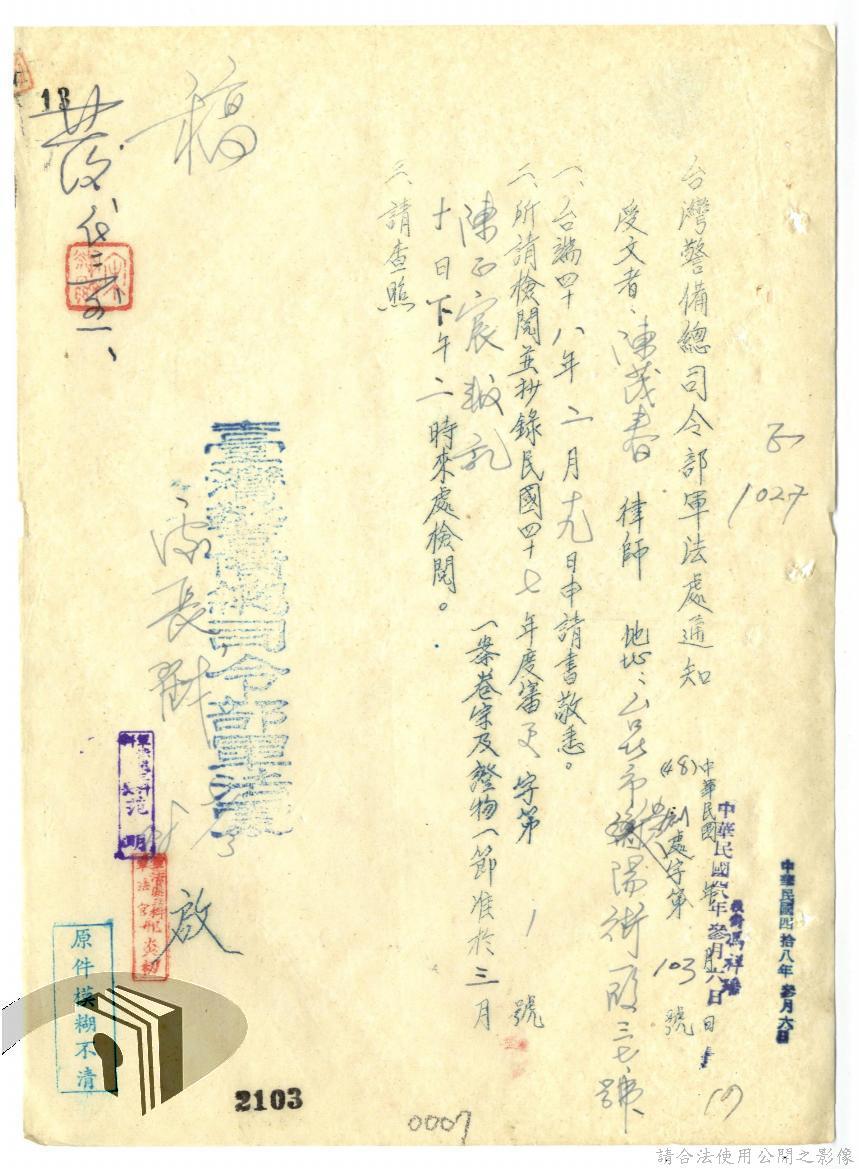 稿
13
正
1027
台灣警備總司令部軍法處通知
中華民國 年 月 日
中華民國 年參月六日
中華民國四拾八年參月六日
(48) 處字第 103 號
受文者：陳茂春 律師 地址：台北市衡陽街 段三七號
一、台端四十八年二月十九日申請書敬悉。
二、所請檢閱並抄錄民國四十七年度審更字第 1 號
陳正宸叛乱 一案卷宗及證物一節准於三月
十日下午二時來處檢閱。
三、請查照
臺灣警備總司令部軍法處
處長
啟
原件模糊不清
2103
0007
請合法使用公開之影像